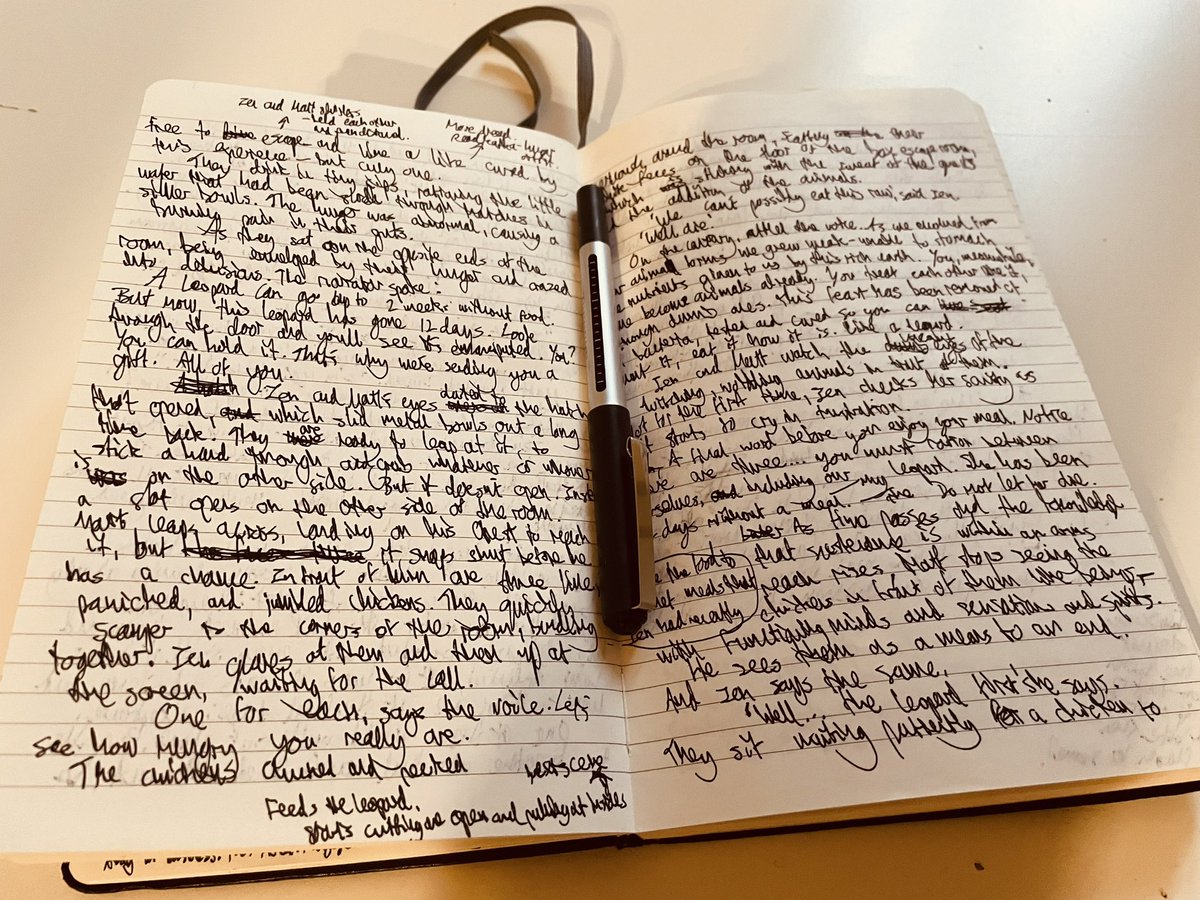 Jen and Matt
- feed each other
More dread
free to escape and live a life cured by
this experience - but only one.
They drink in tiny sips, rationing the little
water that had been slid through hatches in
silver bowls. The hunger was abnormal, causing a
burning pain in their guts.
As they sat on the opposite ends of the
room, being enveloped by their hunger and crazed
into delusions. The narrator spoke:
A Leopard can go up to 2 weeks without food.
But now, this leopard has gone 12 days. Look
through the door and you'll see its emancipated. You?
You can hold it. That's why we're sending you a
gift. All of you.
Jen and Matt's eyes darted to the hatch
that opened, which slid metal bowls out a long
time back. They are ready to leap at it, to
stick a hand through and grab whatever or whoever
is on the other side. But it doesn't open. Inst
a slot opens on the other side of the room.
Matt leaps across, landing on his chest to reach
it, but it snaps shut before he
has a chance. In front of him are three live,
panicked, and jumbled chickens. They quickly
scamper to the corners of the room, huddling
together. Jen glares at them and then up at
the screen, waiting for the call.
One for each, says the voice. Let's
see how hungry you really are.
The chickens clucked and pecked
next scene
Feeds the leopard.
starts cutting one open and pulling at
around the room, their
on the floor of the box escape room,
stinking with the sweat of the
the addition of the animals.
'We can't possibly eat this raw,' said Jen
'We'll die.'
On the contrary, rattled the voice. As we evolved from
animal forms we grew weak - unable to stomach
nutrients given to us by this rich earth. You, meanwhile,
become animals already. You treat each other like it,
ones. This feast has been removed of
bacteria, tested and cured so you can
it, eat it how it is. Like a leopard.
Jen and Matt watch the eyes of the
twitching, wobbling animals in front of them.
for the first time, Jen checks her sanity as
starts to cry in frustration.
A final word before you enjoy your meal. Notice
are three.... you must ration between
selves, including our my leopard. She has been
days without a meal. Do not let her die.
As time passes and the knowledge
that sustenance is within an arms
reach rises, Matt stops seeing the
chickens in front of them like beings
with functioning minds and sensation and spirits.
He sees them as a means to an end.
And Jen says the same.
'Well... the leopard first' she says.
They sit waiting patiently for a chicken to